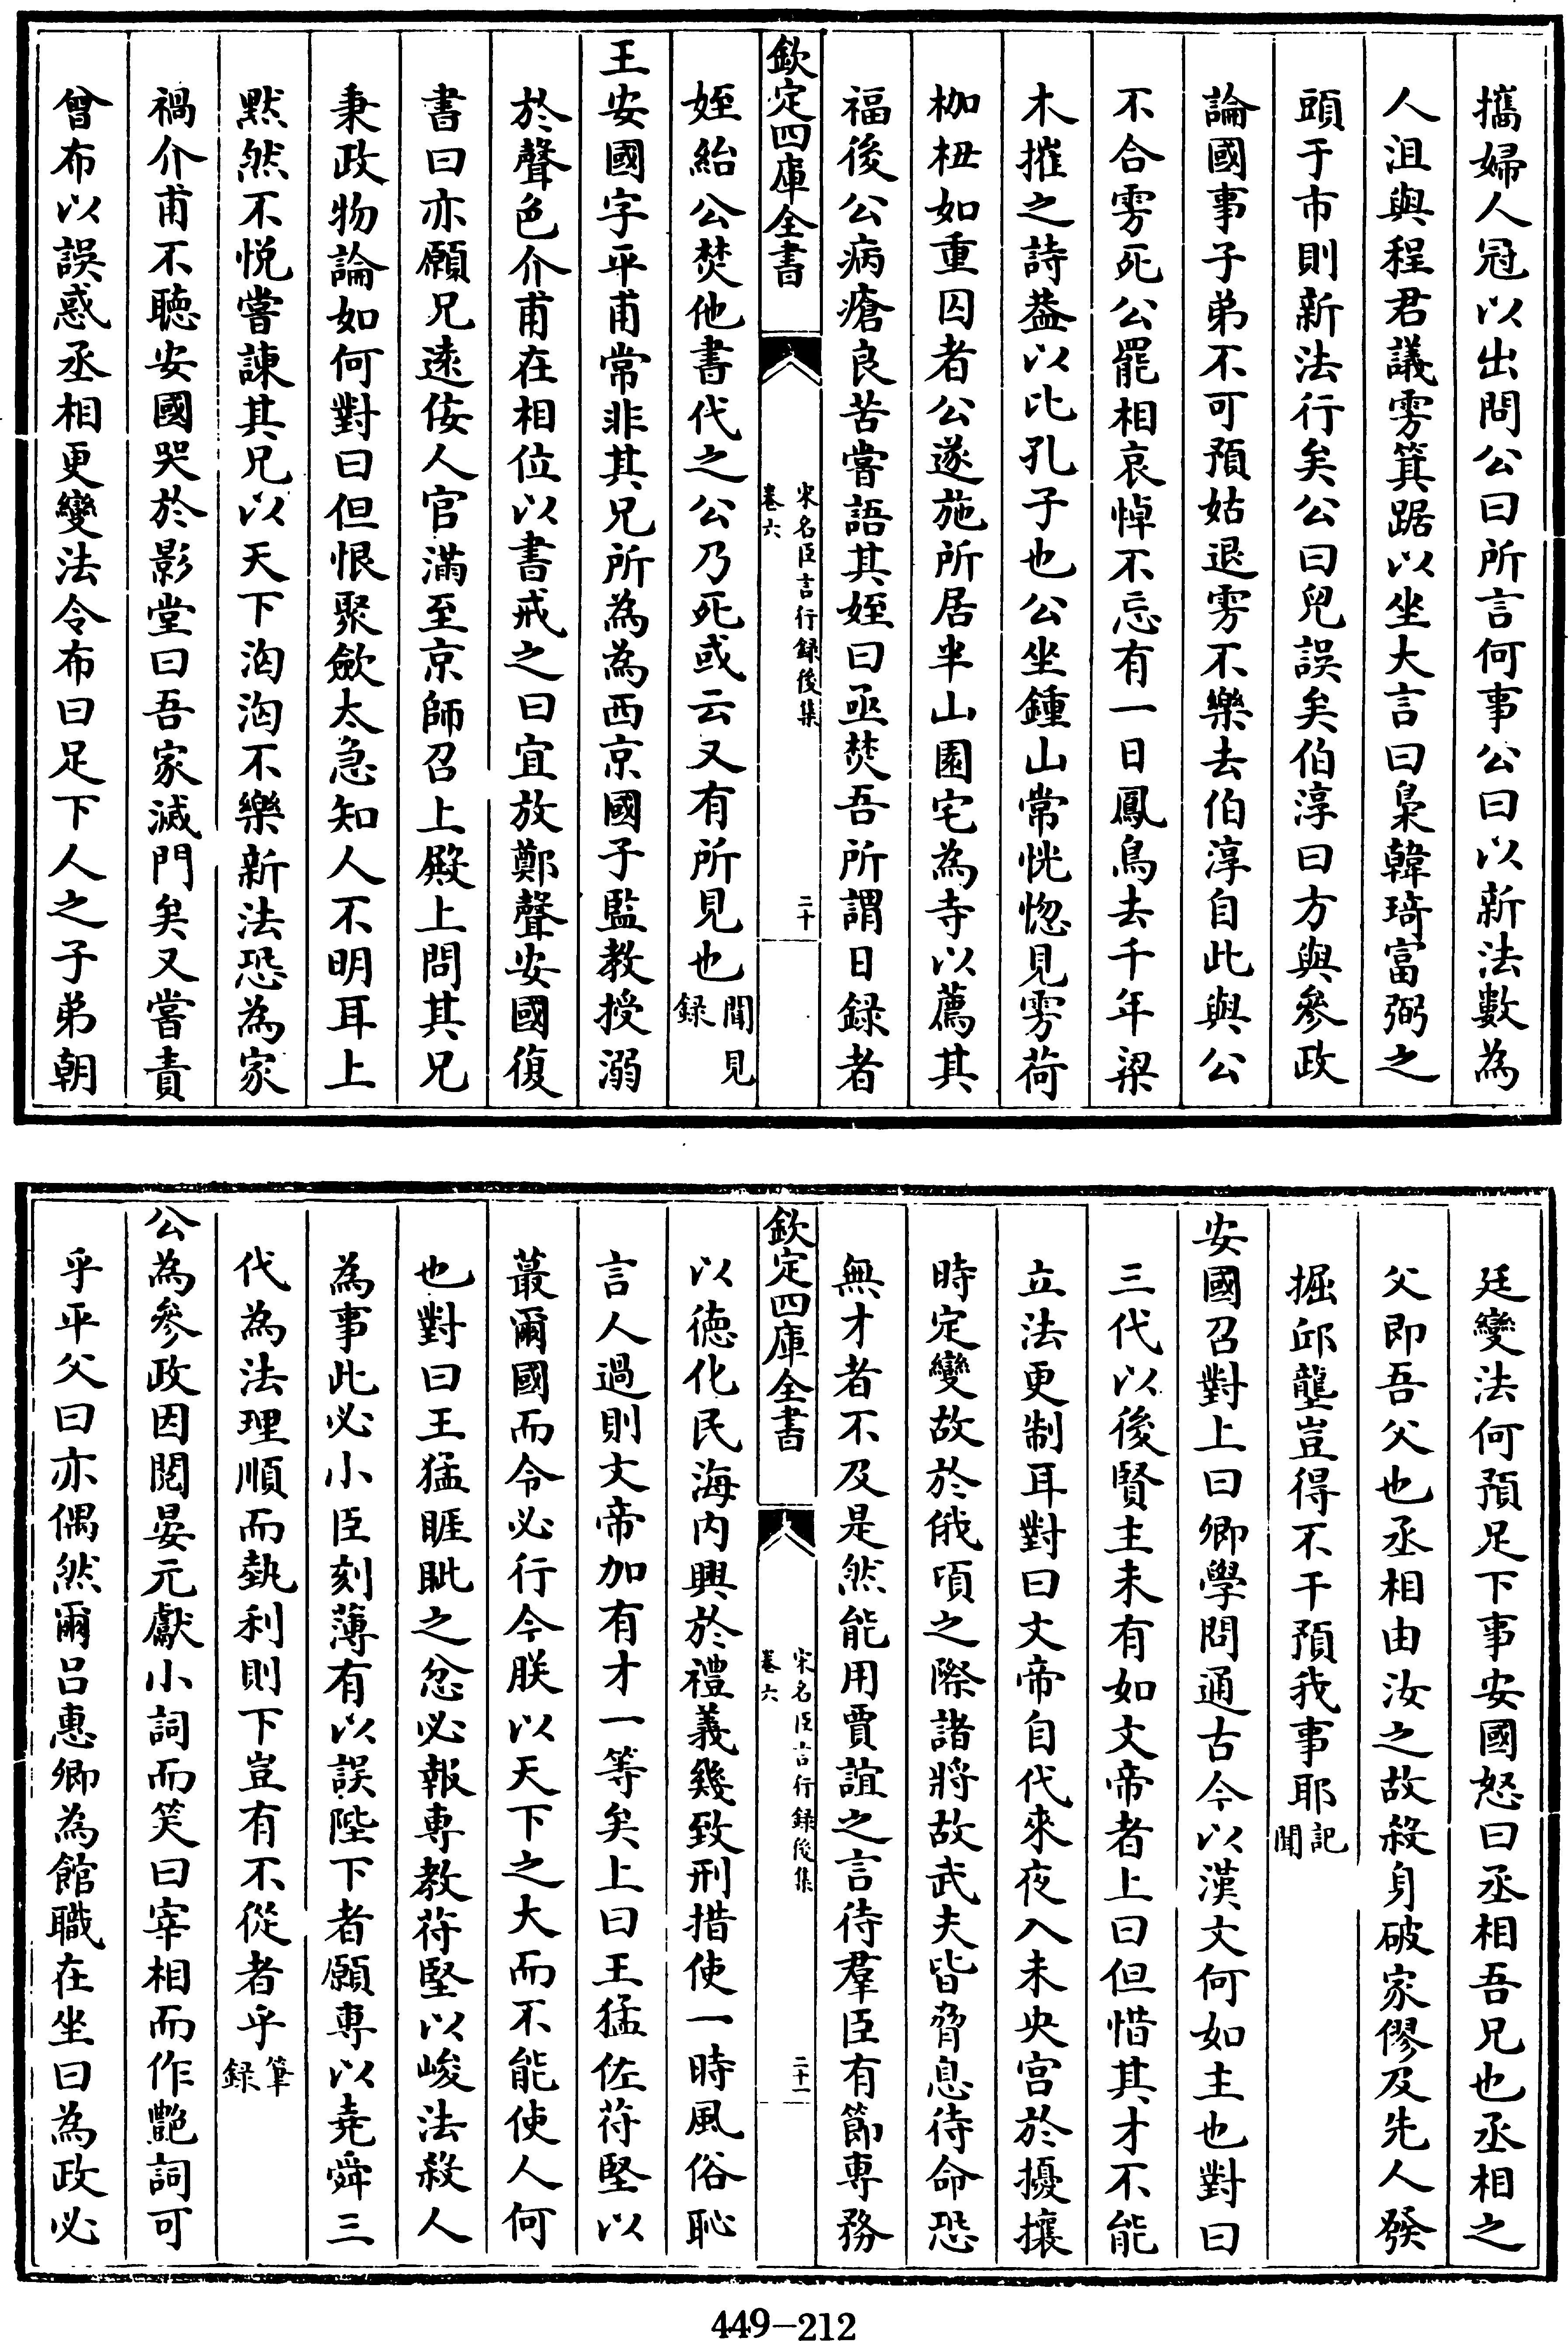 攜婦人冠以出問公曰所言何事公曰以新法數為
人沮與程君議雱箕踞以坐大言曰梟韓琦富弼之
頭于市則新法行矣公曰兒誤矣伯淳曰方與參政
論國事子弟不可預姑退雱不樂去伯淳自此與公
不合雱死公罷相哀悼不忘有一日鳳鳥去千年梁
木摧之詩葢以比孔子也公坐鍾山常恍惚見雱荷
枷杻如重囚者公遂施所居半山園宅為寺以薦其
福後公病瘡良苦嘗語其姪曰亟焚吾所謂日録者
欽定四庫全書
宋名臣言行録後集
卷六
二十
姪紿公焚他書代之公乃死或云又有所見也聞見
録
王安國字平甫常非其兄所為為西京國子監教授溺
於聲色介甫在相位以書戒之曰宜放鄭聲安國復
書曰亦願兄逺佞人官滿至京師召上殿上問其兄
秉政物論如何對曰但恨聚歛太急知人不明耳上
黙然不悦嘗諫其兄以天下洶洶不樂新法恐為家
禍介甫不聽安國哭於影堂曰吾家滅門矣又嘗責
曾布以誤惑丞相更變法令布曰足下人之子弟朝
廷變法何預足下事安國怒曰丞相吾兄也丞相之
父即吾父也丞相由汝之故殺身破家僇及先人發
掘邱壟豈得不干預我事耶記
聞
安國召對上曰卿學問通古今以漢文何如主也對曰
三代以後賢主未有如文帝者上曰但惜其才不能
立法更制耳對曰文帝自代來夜入未央宫於擾攘
時定變故於俄頃之際諸將故武夫皆脅息待命恐
無才者不及是然能用賈誼之言待羣臣有節專務
欽定四庫全書
宋名臣言行録後集
卷六
二十一
以徳化民海内興於禮義幾致刑措使一時風俗恥
言人過則文帝加有才一等矣上曰王猛佐苻堅以
蕞爾國而令必行今朕以天下之大而不能使人何
也對曰王猛睚眦之忿必報専教苻堅以峻法殺人
為事此必小臣刻薄有以誤陛下者願専以堯舜三
代為法理順而埶利則下豈有不從者乎筆
録
公為參政因閲晏元獻小詞而笑曰宰相而作艶詞可
乎平父曰亦偶然爾吕惠卿為館職在坐曰為政必
449-212